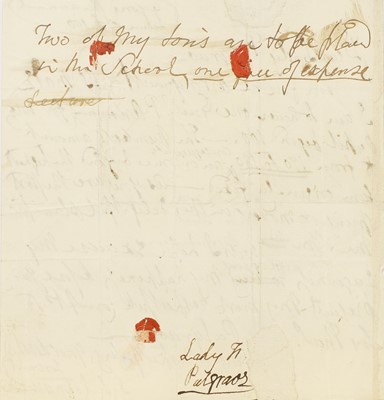 Two of my sons are to be plac
in the School, one free of expense
Lady F.
Palgrave